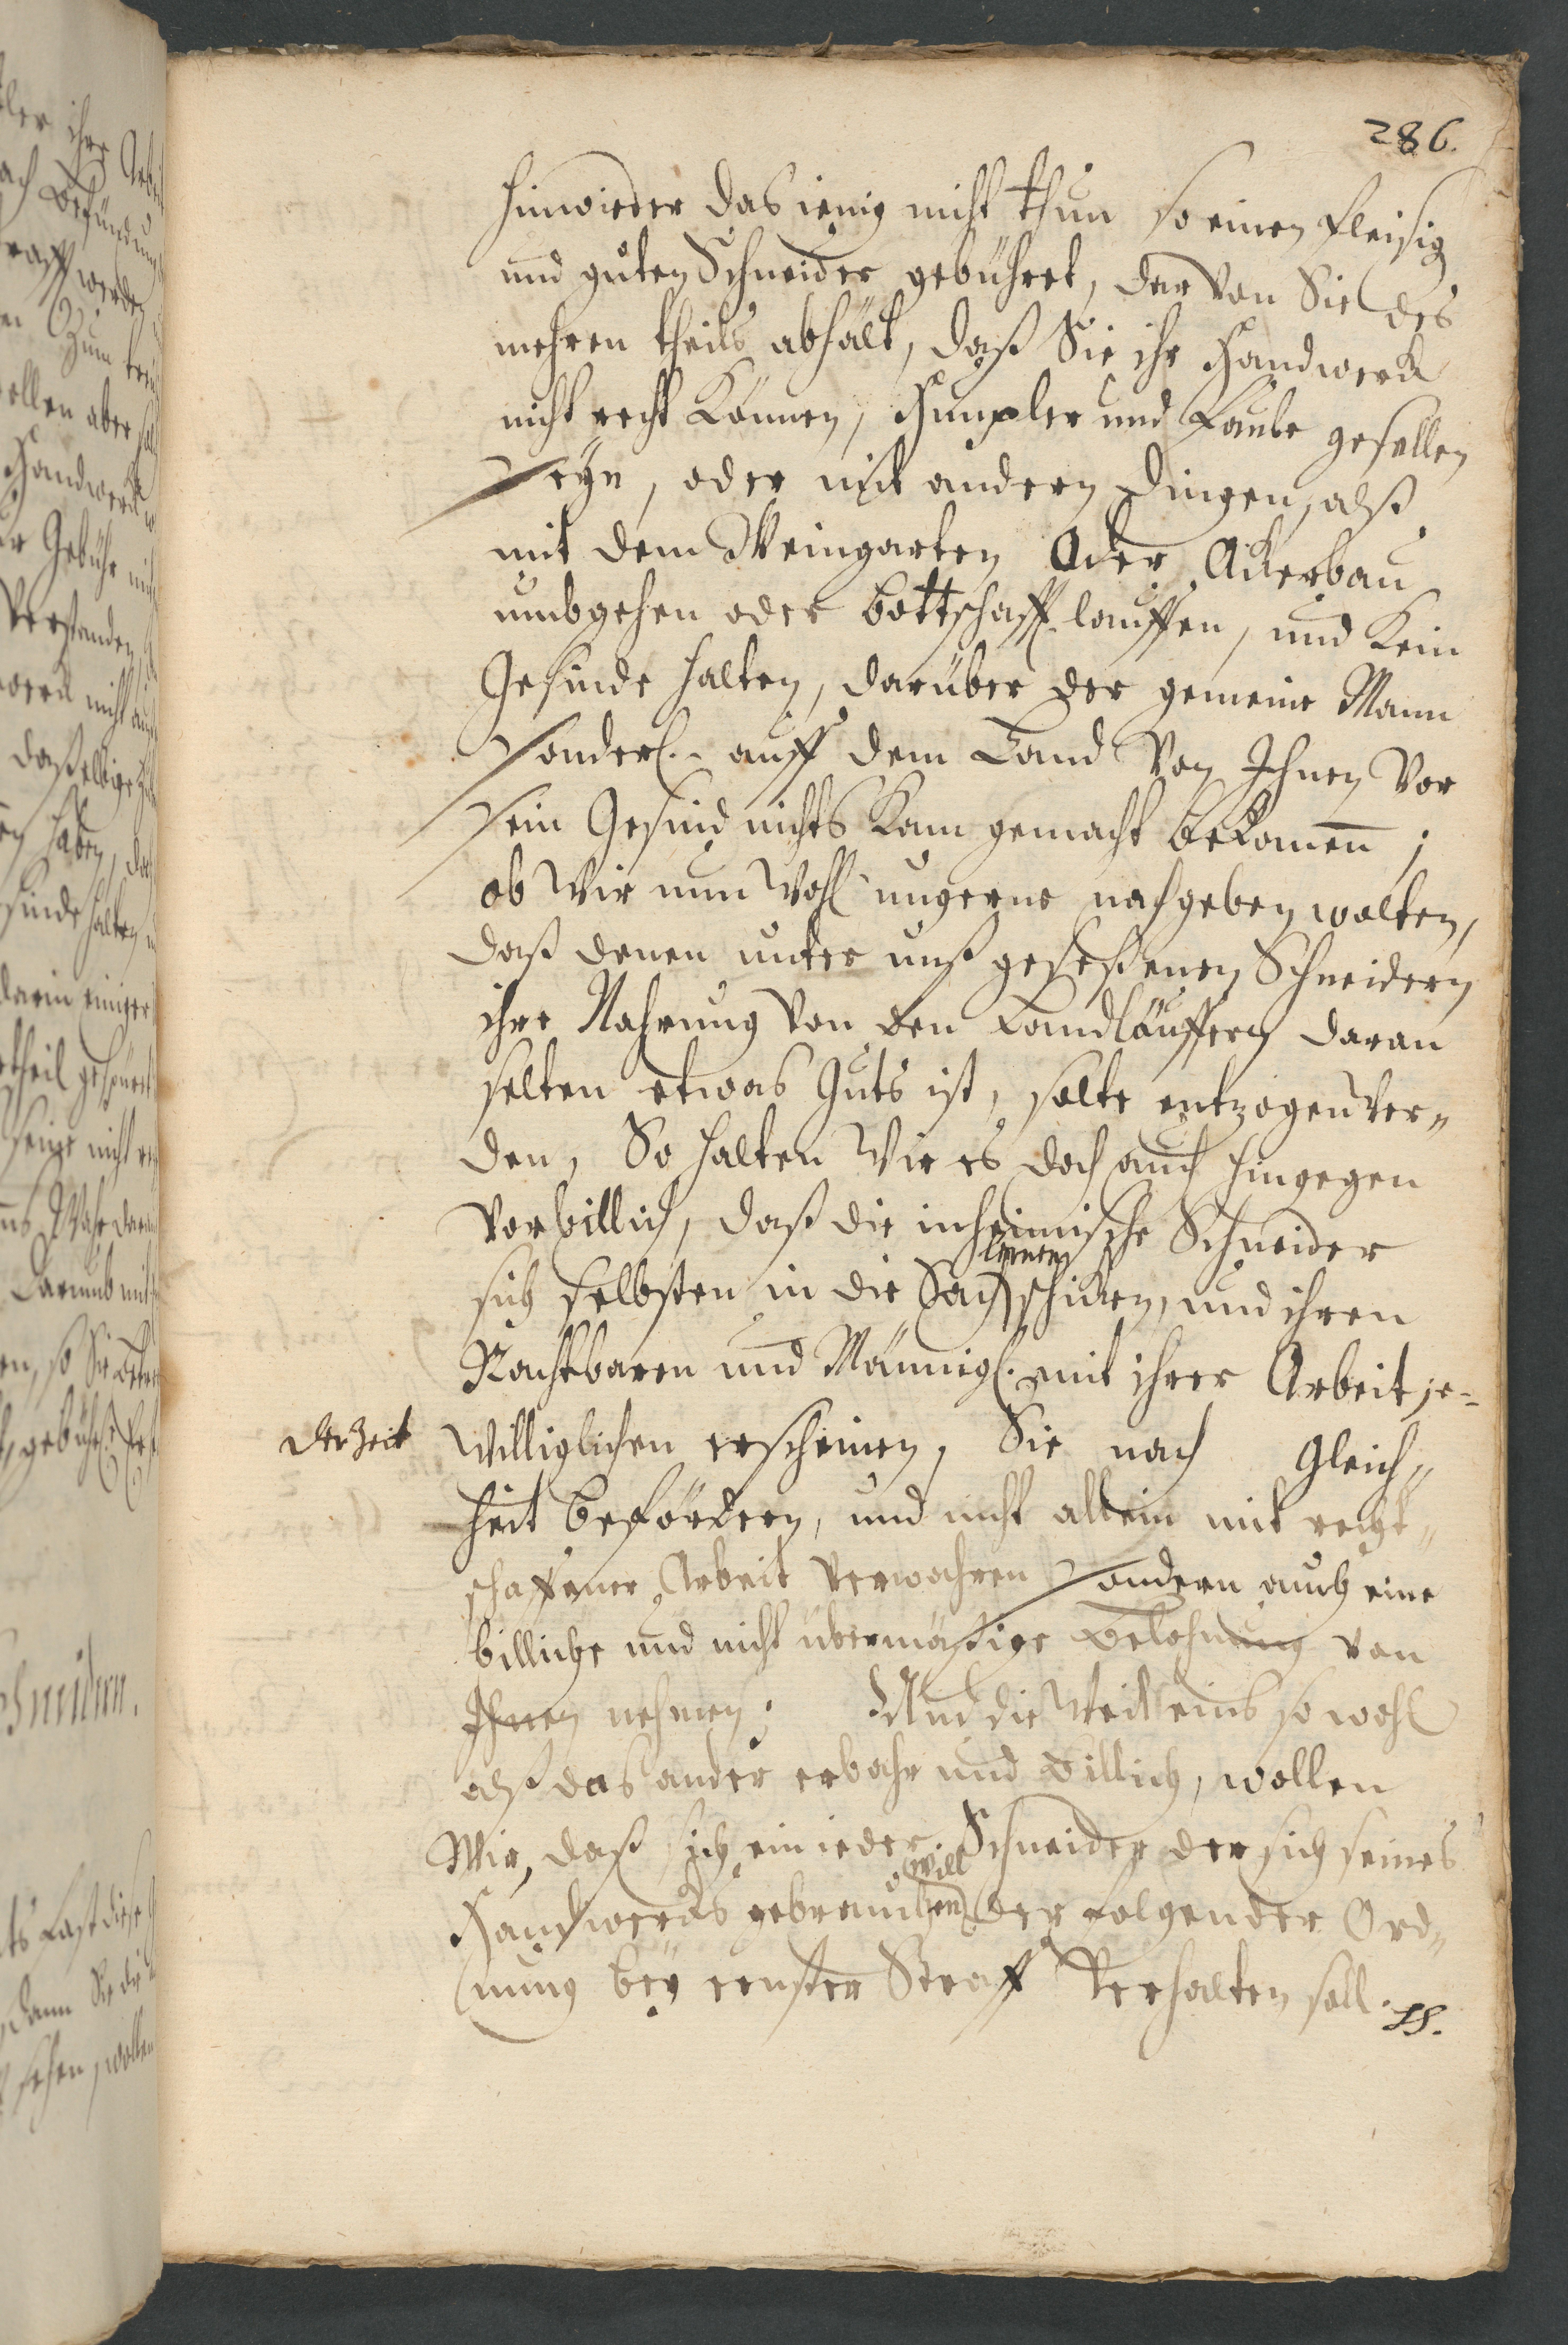 286.
hinwieder das ienig nicht thun so einen fleisig
und guten Schneider gebühret, dar von Sie des
mehren theils abhält, daß Sie ihr Handwerck
nicht recht können, Humpler und Faule gesellen
seyn, oder mit andern dingen, alß
mit dem Weingarten Oder Ackerbau
umbgehen oder bottschafft lauffen, und kein
Gesinde halten, darüber der gemeine Mann
sonderl. auff dem Land von Ihnen vor
sein Gesind nichts kann gemacht bekomen;
ob Wir nun wohl ungerne nachgeben wolten,
daß denen unter unß geseßenen Schneidern
ihre Nahrung von den Landläuffern daran
selten etwas Guts ist, solte entzogen wer„
den, So halten Wir es doch auch hingegen
vor billich, daß die inheimische Schneider
sich selbsten in die Sach lernen schicken, und ihren
Nachtbaren und Männigl. mit ihrer Arbeit je-
der Zeit willfiglichen erscheinen, Sie nach Gleich„
heit befördern, und nicht allein mit recht„
schaffener Arbeit verwahren sondern auch eine
billiche und nicht übermäsige belohnung von
Ihnen nehmen; Und die weil eins so wohl
alß das ander erbahr und billich, wollen
Wir, daß sich ein ieder Schneider der sich seines
Handwercks gebrauchen will der folgender Ord„
nung bey ernster Straff verhalten soll.